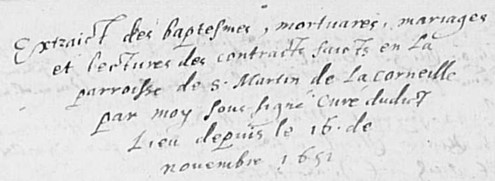 Extraict des baptesmes, mortuares, mariages
et lectures des contracts faicts en La
parroisse de S. Martin de La corneille
par moy sous signé Curé dudict
Lieu depuis le 16. de
novembre 1651